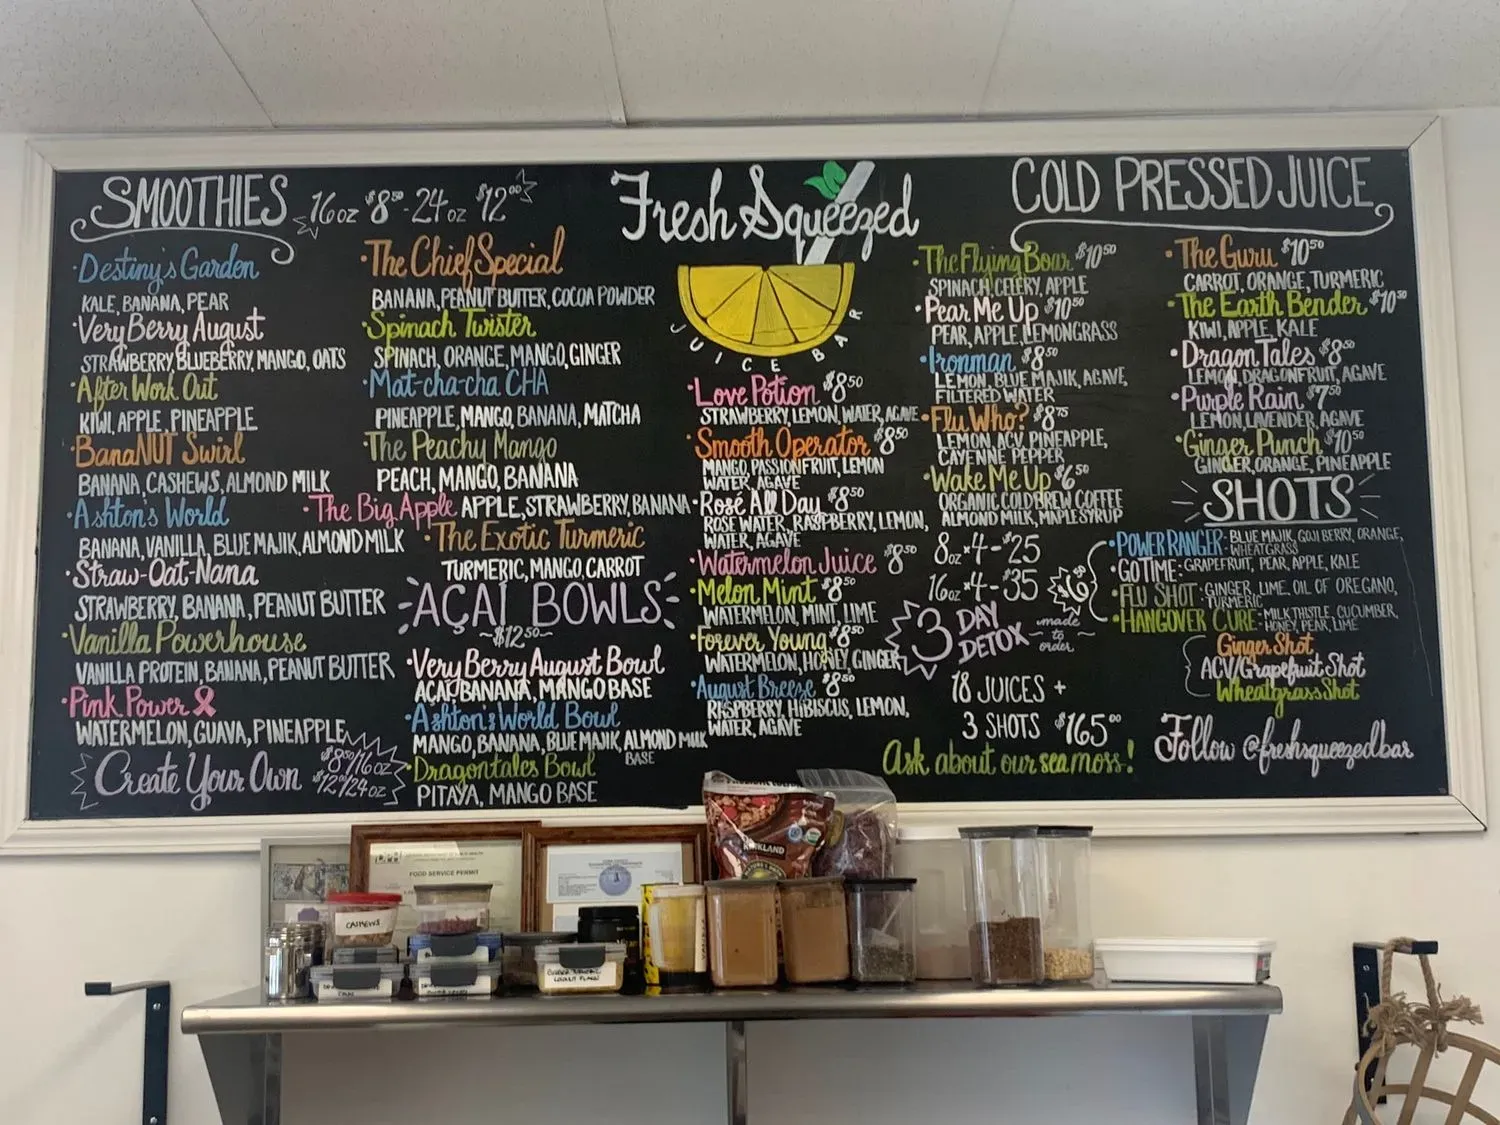 SMOOTHIES 16oz $8.50 - 24oz $12.00
·Destiny's Garden
KALE, BANANA, PEAR
·Very Berry August
STRAWBERRY, BLUEBERRY, MANGO, OATS
·After Work Out
KIWI, APPLE, PINEAPPLE
·BanaNUT Swirl
BANANA, CASHEWS, ALMOND MILK
·Ashton's World
BANANA, VANILLA, BLUE MAJIK, ALMOND MILK
·Straw-Oat-Nana
STRAWBERRY, BANANA, PEANUT BUTTER
·Vanilla Powerhouse
VANILLA PROTEIN, BANANA, PEANUT BUTTER
·Pink Power
WATERMELON, GUAVA, PINEAPPLE
Create Your Own $8.50/16oz
$12.00/24oz
·The Chief Special
BANANA, PEANUT BUTTER, COCOA POWDER
·Spinach Twister
SPINACH, ORANGE, MANGO, GINGER
·Mat-cha-cha CHA
PINEAPPLE, MANGO, BANANA, MATCHA
·The Peachy Mango
PEACH, MANGO, BANANA
·The Big Apple APPLE, STRAWBERRY, BANANA
·The Exotic Turmeric
TURMERIC, MANGO, CARROT
AÇAÍ BOWLS
~$12.50~
·Very Berry August Bowl
AÇAI, BANANA, MANGO BASE
·Ashton's World Bowl
MANGO, BANANA, BLUE MAJIK, ALMOND MILK
BASE
·Dragontales Bowl
PITAYA, MANGO BASE
Fresh Squeezed
JUICE BAR
COLD PRESSED JUICE
·Love Potion $8.50
STRAWBERRY, LEMON, WATER, AGAVE
·Smooth Operator $8.50
MANGO, PASSIONFRUIT, LEMON
WATER, AGAVE
·Rosé All Day $8.50
ROSE WATER, RASPBERRY, LEMON,
WATER, AGAVE
·Watermelon Juice $8.50
·Melon Mint $8.50
WATERMELON, MINT, LIME
·Forever Young $8.50
WATERMELON, HONEY, GINGER
·August Breeze $8.50
RASPBERRY, HIBISCUS, LEMON,
WATER, AGAVE
·The Flying Boar $10.50
SPINACH, CELERY, APPLE
·Pear Me Up $10.50
PEAR, APPLE, LEMONGRASS
·Ironman $8.50
LEMON, BLUE MAJIK, AGAVE,
FILTERED WATER
·Flu Who? $8.75
LEMON, ACV, PINEAPPLE,
CAYENNE PEPPER
·Wake Me Up $6.50
ORGANIC COLDBREW COFFEE
ALMOND MILK, MAPLE SYRUP
8oz*4-$25
16oz*4-$35
3 DAY
DETOX
made
to
order
18 JUICES +
3 SHOTS $165.00
Ask about our sea moss!
·The Guru $10.50
CARROT, ORANGE, TURMERIC
·The Earth Bender $10.50
KIWI, APPLE, KALE
·Dragon Tales $8.50
LEMON, DRAGONFRUIT, AGAVE
·Purple Rain $7.50
LEMON, LAVENDER, AGAVE
·Ginger Punch $10.50
GINGER, ORANGE, PINEAPPLE
SHOTS
$6
·POWER RANGER-BLUE MAJIK, GOJI BERRY, ORANGE,
WHEATGRASS
·GO TIME-GRAPEFRUIT, PEAR, APPLE, KALE
·FLU SHOT-GINGER, LIME, OIL OF OREGANO,
TURMERIC
·HANGOVER CURE-MILK THISTLE, CUCUMBER,
HONEY, PEAR, LIME
Ginger Shot
ACV/Grapefruit Shot
Wheatgrass Shot
Follow @freshsqueezedbar
KIRKLAND
FOOD SERVICE PERMIT
CASHEWS